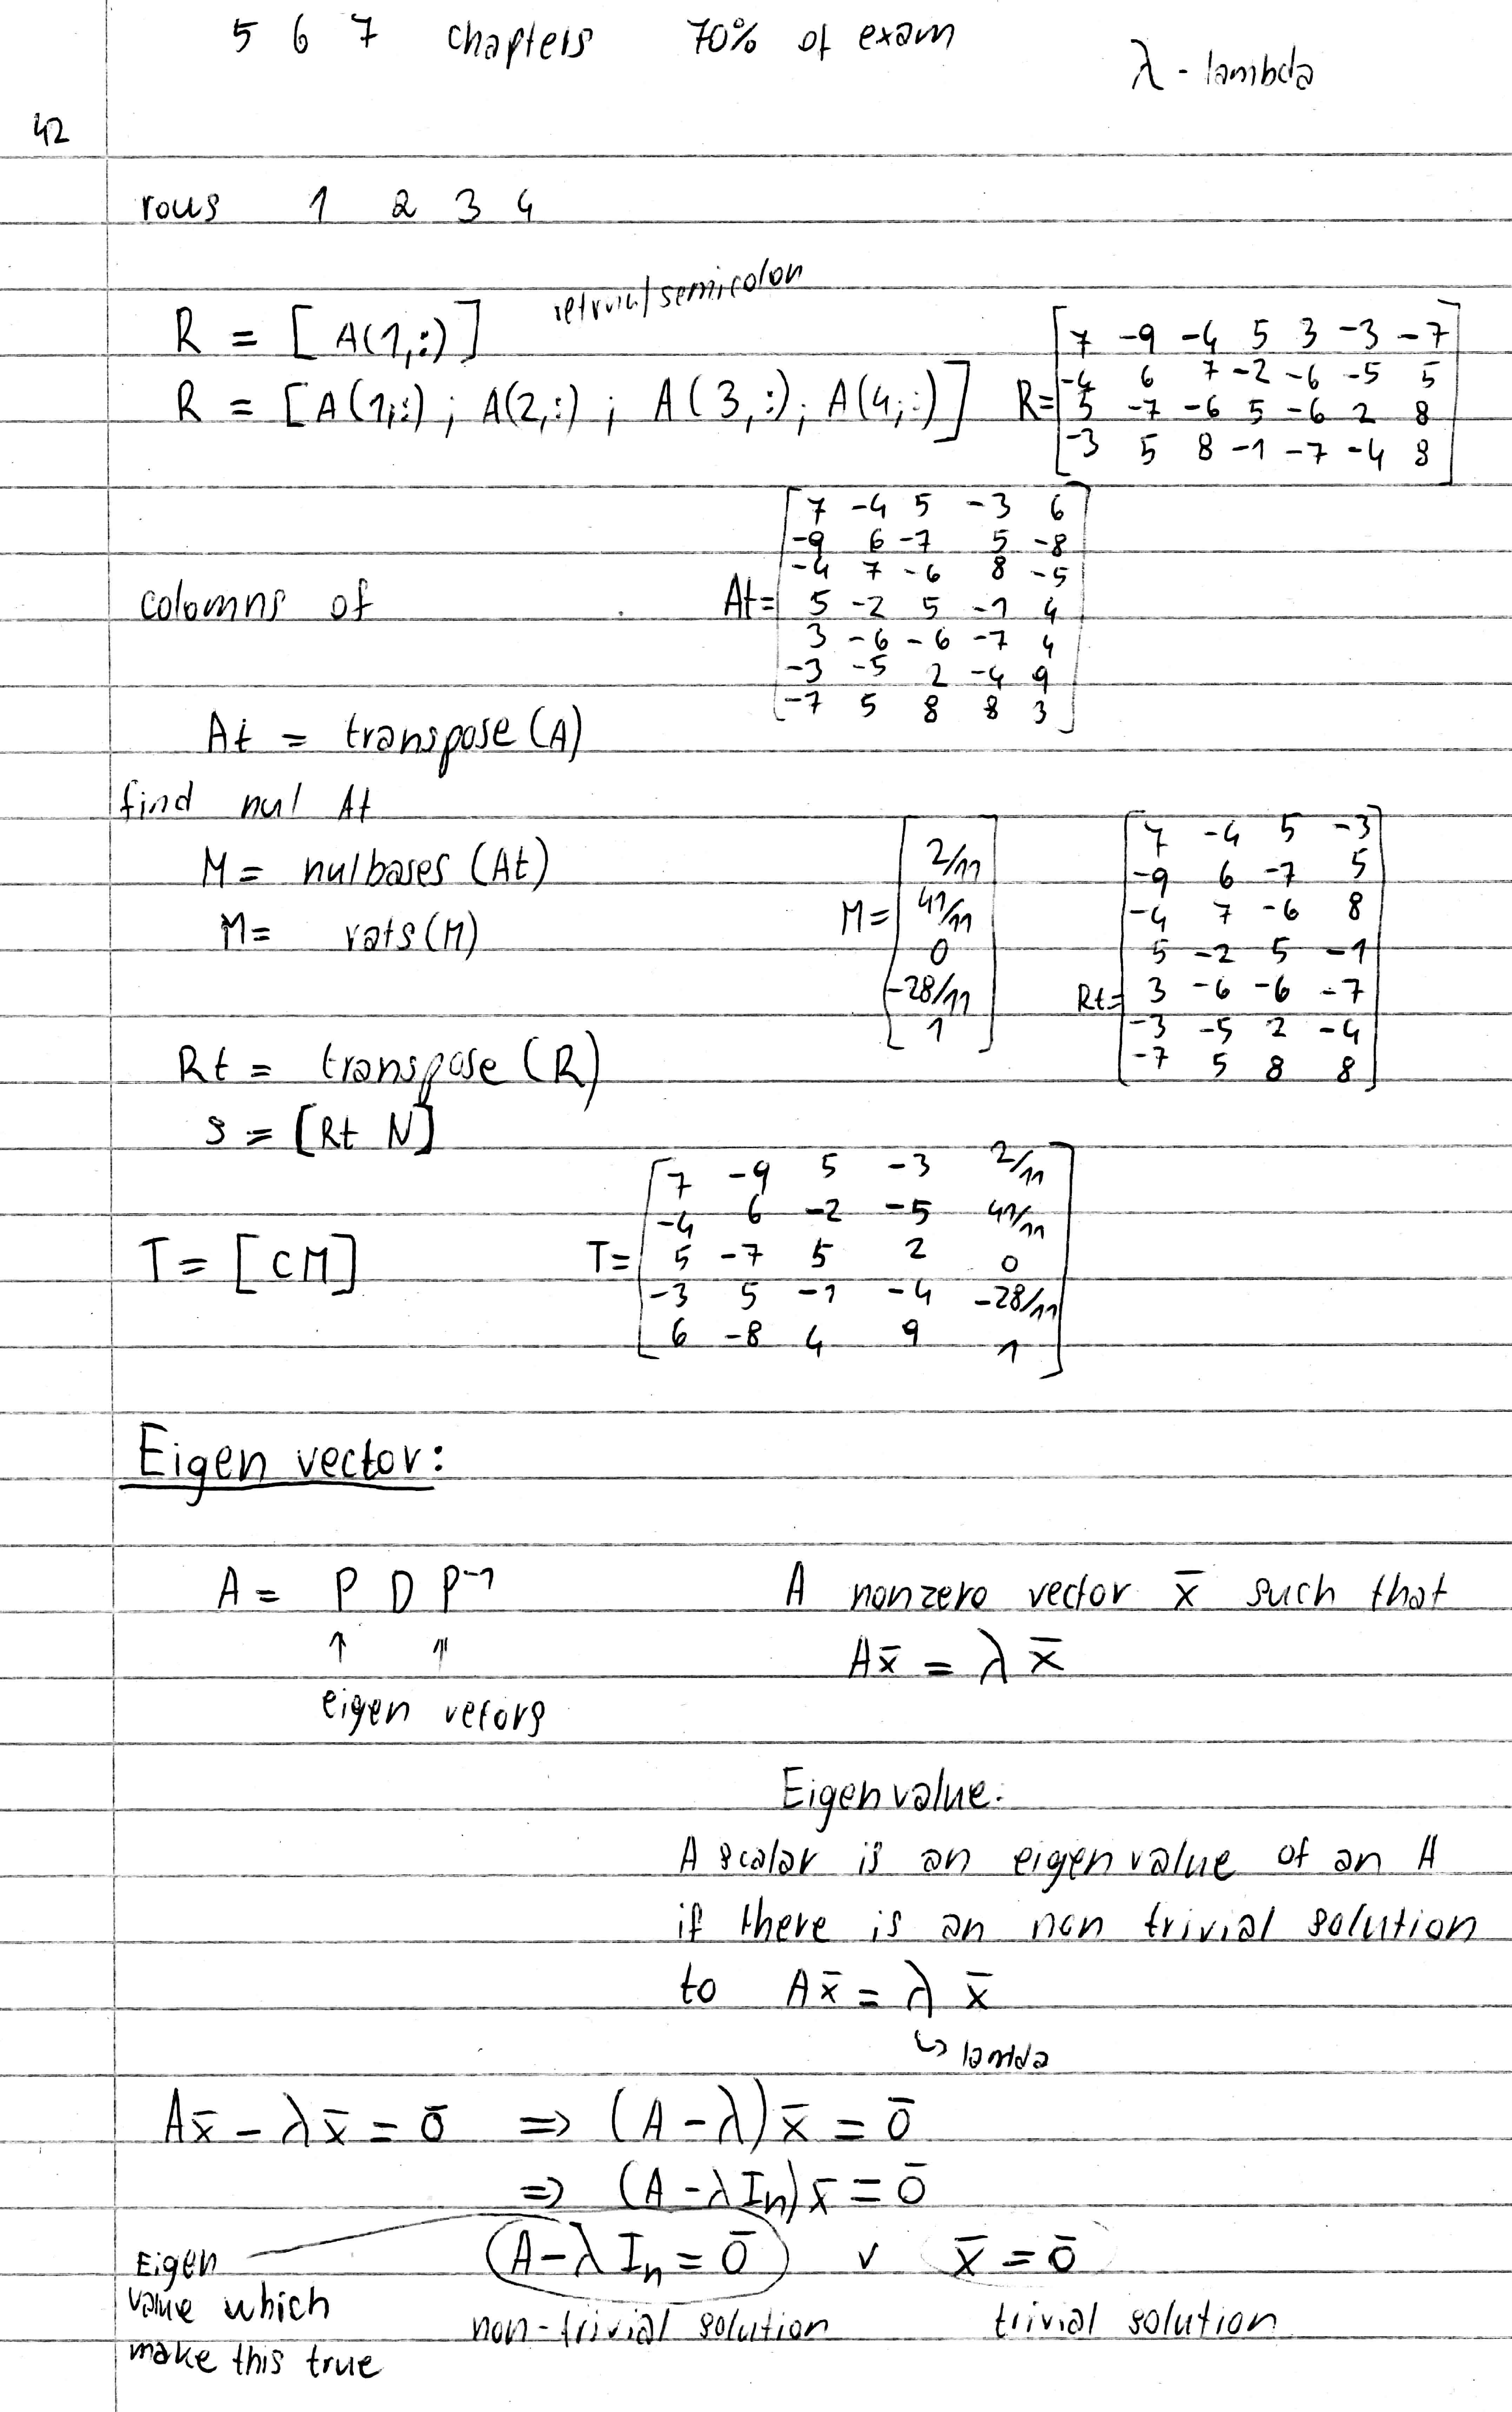 5 6 7 chapters 70% of exam
λ - lambda
42
rows 1 2 3 4
R = [A(1,:)] semicolon
R = [A(1,:) ; A(2,:) ; A(3,:) ; A(4,:)]
R=
7 -9 -4 5 3 -3 -7
-4 6 7 -2 -6 -5 5
5 -7 -6 5 -6 2 8
-3 5 8 -1 -7 -4 8
colomns of
At=
7 -4 5 -3 6
-9 6 -7 5 -8
-4 7 -6 8 -5
5 -2 5 -1 4
3 -6 -6 -7 4
-3 -5 2 -4 9
-7 5 8 8 3
At = transpose (A)
find nul At
M = nulbases (At)
M = rats (M)
M=
2/11
41/11
0
-28/11
1
Rt=
7 -4 5 -3
-9 6 -7 5
-4 7 -6 8
5 -2 5 -1
3 -6 -6 -7
-3 -5 2 -4
-7 5 8 8
Rt = transpose (R)
S = [Rt N]
T = [C M]
T=
7 -9 5 -3 2/11
-4 6 -2 -5 41/11
5 -7 5 2 0
-3 5 -1 -4 -28/11
6 -8 4 9 1
Eigen vector:
A = P D P⁻¹
↑ ↑
eigen vetors
A nonzero vector x̄ such that
Ax̄ = λ x̄
Eigenvalue:
A scalar is an eigenvalue of an A
if there is an non trivial solution
to Ax̄ = λ x̄
↳ lamda
Ax̄ - λx̄ = ō ⇒ (A - λ)x̄ = ō
⇒ (A - λIₙ)x̄ = ō
A - λ Iₙ = ō v x̄ = ō
Eigen
value which
make this true
non-trivial solution trivial solution